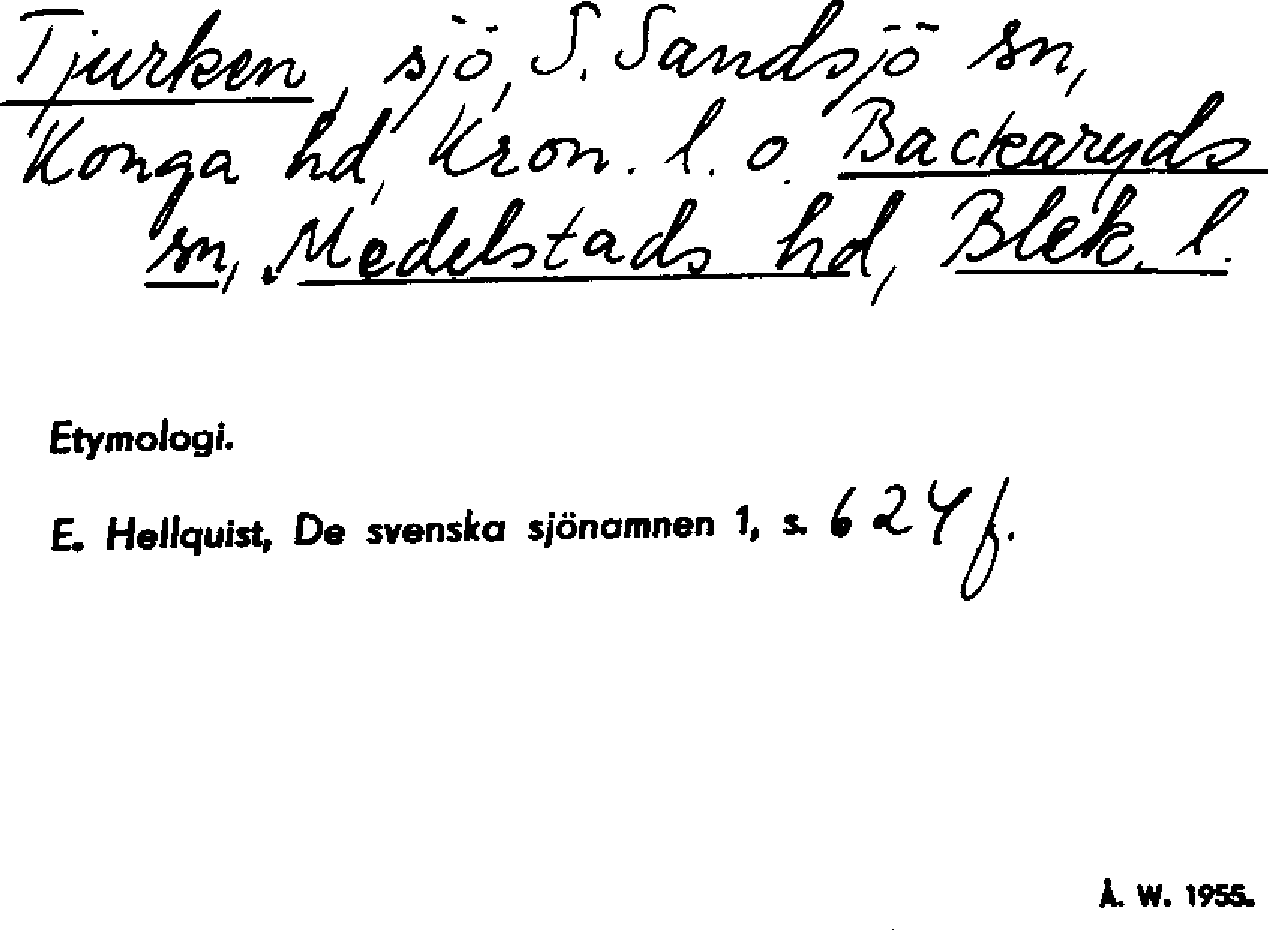 Tjurken, sjö, S. Sandsjö sn,
Konga hd, Kron. l. o. Backaryds
sn, Medelstads hd, Blek. l.
Etymologi.
E. Hellquist, De svenska sjönamnen 1, s. 624 f.
Å. W. 1955.